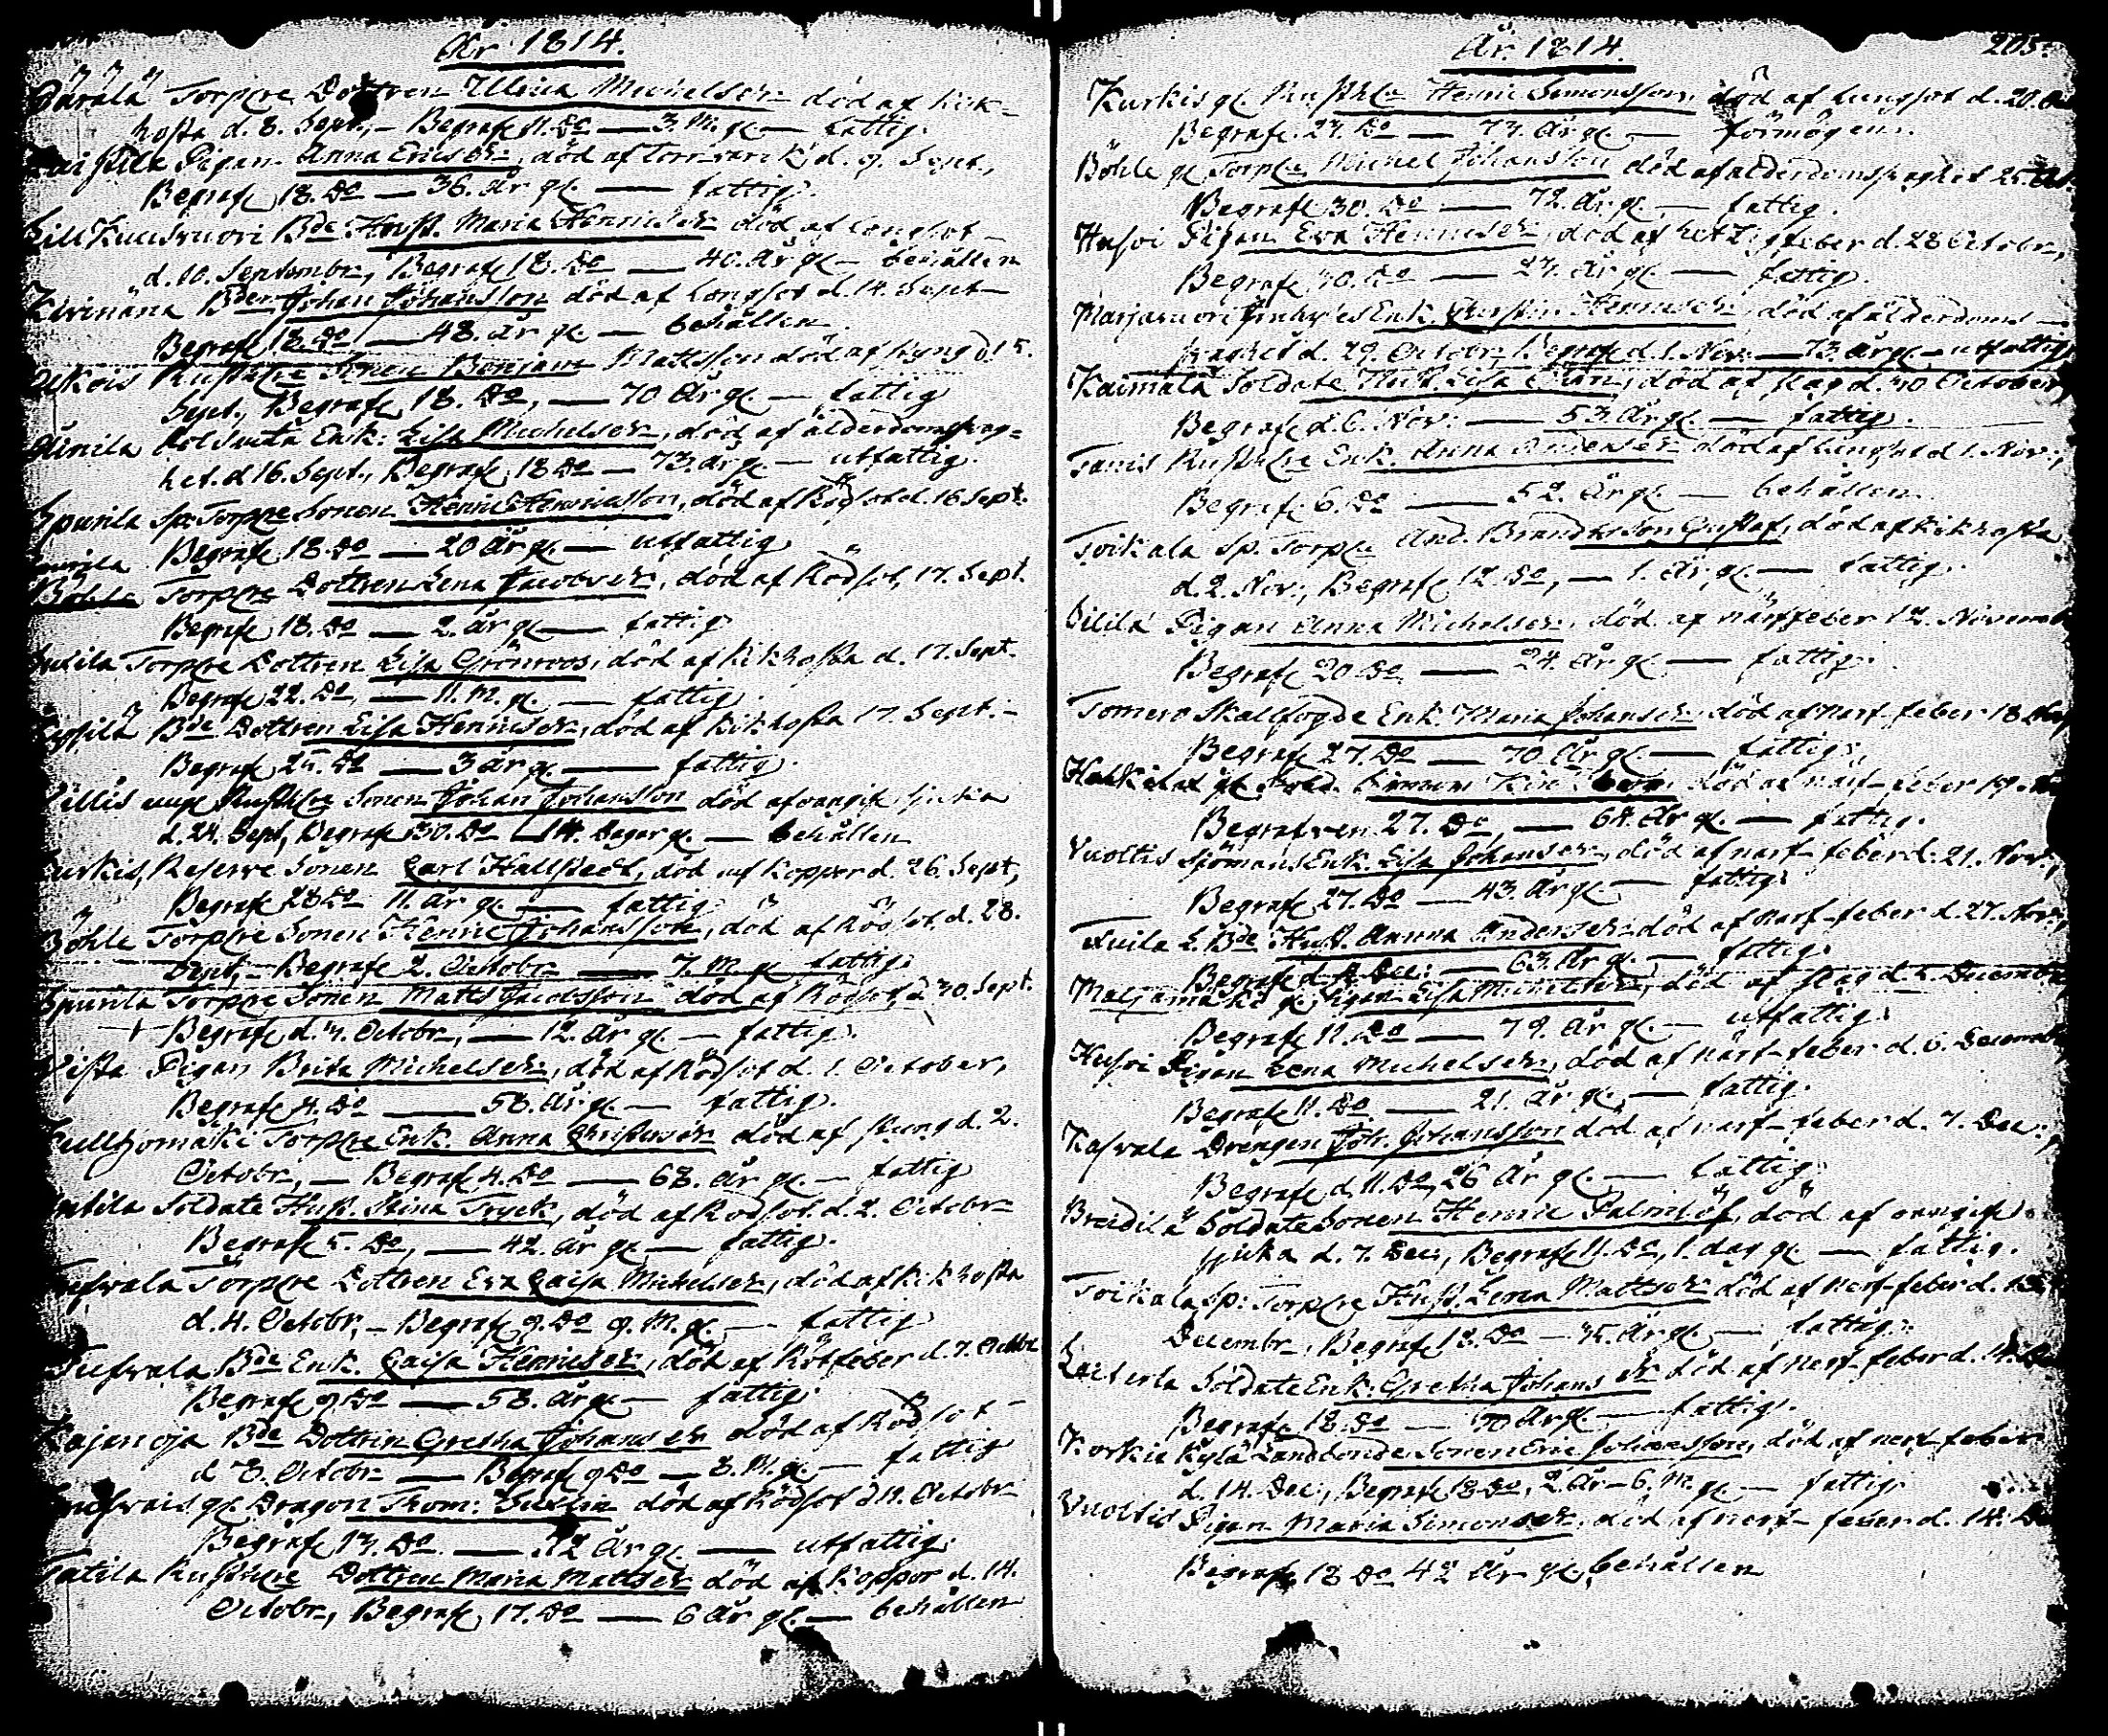 År 1814.
Törpare Dottren Ullrica Michelsdr död af kik-
hosta d. 8. Sept., – Begrafc 11. Do — 3. M. gl. — fattig.
Pigan Anna Ericsdr, död af torrvärk d. 9. Sept.,
Begrafc 18. Do — 36. år gl. — fattig.
Bde Hust. Maria Henricsdr död af lungsot
d. 10. Septembr, Begrafc 18. Do — 40. År gl. – behållen
Kivinäna Bden Johan Johansson död af lungsot d. 14. Sept
Begrafc 18. Do — 48. år gl. — behållen.
Rusth. Benjam Mattsson död af styng d. 15.
Sept., Begrafc 18. Do, — 70 År gl. — fattig
Enk: Lisa Michelsdr, död af ålderdomsbräg-
het. d. 16. Sept., Begrafc 18 Do — 73. år gl. — utfattig.
Spurila Sp: Torpre Sonen Henric Henricsson, död af Rödsot d. 16 Sept.
Begrafc 18. Do — 20 År gl. — utfattig
Böhle Torpre Dottren Lena Jacobsdr, död af Rödsot, 17. Sept.
Begrafc 18. Do — 2. år gl. — fattig
Torpre Dottren Lisa Grönroos, död af kikhosta d. 17. Sept.
Begrafc 22. Do, — 11. M. gl. — fattig
Bde Dottren Lisa Henricsdr, död af kikhosta 17. Sept. –
Begrafc 25. Do — 3 år gl. — fattig.
unge Rusth. Sonen Johan Johansson död af oangifn sjuka
d. 24. Sept, Begrafc 30. Do — 14. Dagar gl. — behållen
Kurkis, Reserve Sonen Carl Hallstedt, död af koppor d. 26. Sept,
Begrafc 28 Do 11. år gl. — fattig
Böhle Torpre Sonen Henric Johansson, död af Rödsot. d. 28.
Sept, – Begrafc 2. Octobr — 7. M. gl. fattig
Spurila Torpre Sonen Matts Jacobsson död af Rödsot d 30. Sept.
Begrafc d. 4. Octobr, — 12. År gl. — fattig.
Pigan Brita Michelsdr, död af Rödsot d. 1. October,
Begrafc 4. Do — 58. år gl. — fattig.
Torpre Enk. Anna Christersdr död af stung d. 2.
Octobr, — Begrafc 4. Do — 68. år gl. — fattig
Soldate Hust. Stina Tryck, död af Rödsot. d. 2. Octobr
Begrafc 5. Do, — 42. år gl. — fattig.
Torpre Dottren Eva Caisa Michelsdr, död af kikhosta
d. 4. Octobr, – Begrafc 9. Do 9. M. gl. — fattig
Tufvala Bde Enk. Caisa Henricsdr, död af Rötfeber d. 7. Octobr
Begrafc 9. Do — 58. år gl. — fattig.
Kajanoja Bde Dottren Gretha Johansdr död af Rödsot
d 8. Octobr — Begrafc 9 Do — 8. M. gl. — fattig
gl. Dragon Thom: död af Rödsot d 11. Octobr
Begrafc 13. Do — 72 År gl. — utfattig
Tatila Rusth. Dottren Maria Mattsdr död af Koppor d. 14.
Octobr, Begrafc, 17. Do — 6 år gl. — behållen
År 1814. 205.
Kurkis gl. Rusth. Henric Simonsson, död af lungsot d. 20.
Begrafc. 23. Do — 73. År gl. — förmögen.
Böhle gl Torpre Michel Johansson död af ålderdomsbräghet 25.
Begrafc 30. Do — 72. År gl. — fattig.
Husvi Pigan Eva Henricsdr, död af hetzig feber d. 28 Octobr,
Begrafc 30. Do — 23. År gl. — fattig
Marjavuori Inhyses Enk. Christin Henricsdr, död af ålderdoms
bräghet d. 29. Octobr, Begrafc d. 1. Nov. — 73. År gl. — utfattig
Kaimala Soldate Hust. Lisa, död af slag d. 30 October,
Begrafc d. 6. Nov: — 53. År gl. — fattig.
Tanis Rusth. Enk. Anna Andersdr död af lungsot d 1. Nov.,
Begrafc. 6. Do — 52. År gl. — behållen.
Toikala Sp. Torpre And. Brandt Son Gustaf, död af kikhosta
d. 2. Nov., Begrafc 12. Do, — 1. År gl. — fattig.
Pigan Anna Michelsdr, död af närffeber 12. Novemb
Begrafc 20. Do — 24. År gl. — fattig.
Tomero Skallfogde Enk. Maria Johansdr, död af närf-feber 18.
Begrafc 27. Do — 70. År gl. — fattig.
gl. Sold. Simon död af närf-feber 19.
Begrafven 27. Do, — 64. År gl. — fattig.
Vuoltis Sjömans Enk. Lisa Johansdr, död af närf-feber d. 21. Nov.,
Begrafc 27. Do — 43. År gl. — fattig.
Bde Hust. Anna Andersdr död af närf-feber d. 27. Nov.,
Begrafc d. Dec. — 63. År gl. — fattig.
Maljamäki gl. Pigan Lisa Michelsdr, död af slag d. Decembr
Begrafc 11. Do — 79. År gl. — utfattig.
Husvi Pigan Lena Michelsdr, död af närf-feber d. 6. Decemb
Begrafc 11. Do — 21. År gl. — fattig.
Kasvala Drengen Joh. Johansson död af närf-feber d. 7. Dec.,
Begrafc d. 11. Do, 26 År gl. — fattig
Bredilä Soldate Sonen Henric Palmlöf, död af oangifn
sjuka d. 7. Dec., Begrafc 11. Do, 1. dag gl. — fattig.
Toikala Sp: Torpre Hust. Lena Mattsdr död af nerf-feber d.
Decembr, Begrafc 18. Do — 35. År gl. — fattig.
Laiterla Soldate Enk. Gretha Johansdr död af nerf-feber d. 14.
Begrafc 18. Do — 70 År gl. — fattig.
Korkis Kylä Landbonde Sonen Eric Johansson, död af nerf-feber
d. 14. Dec., Begrafc 18 Do, 2. År – 6. M. gl. — fattig
Vuoltis Pigan Maria Simonsdr, död af nerf- feber d. 14.
Begrafc 18 Do 42 År gl. behållen